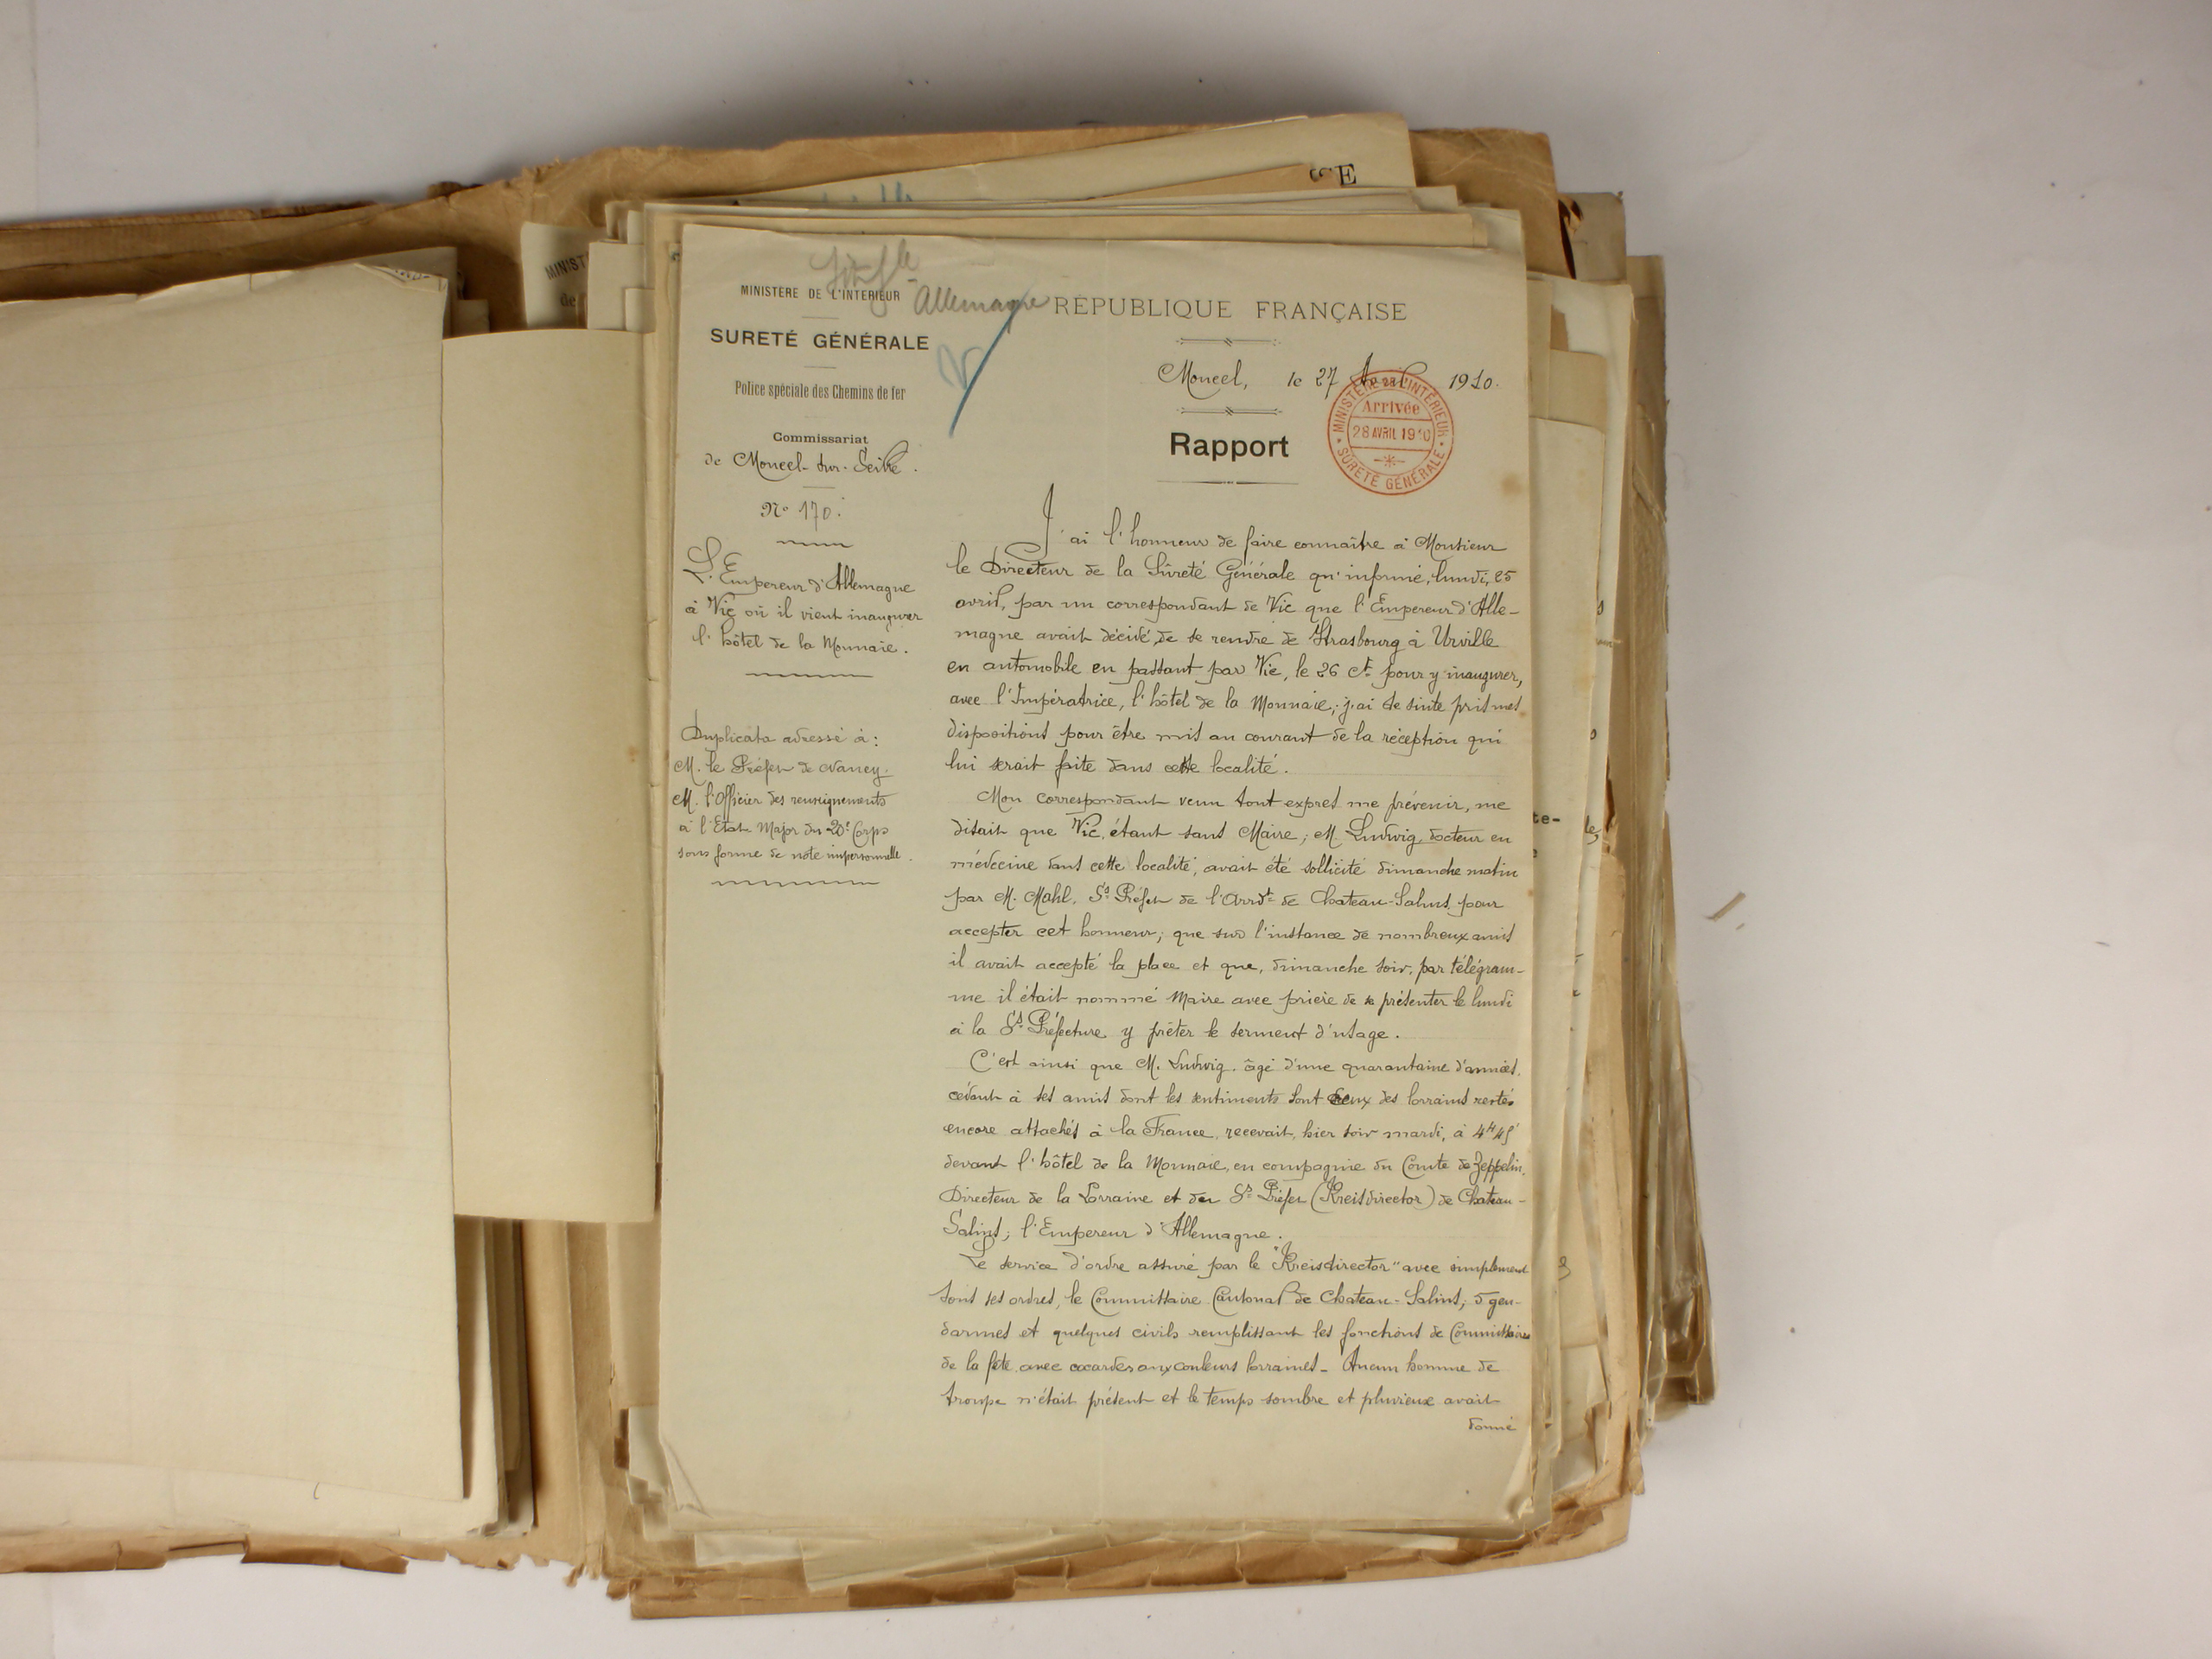 MINISTÈRE DE L'INTÉRIEUR
Allemagne
SURETÉ GÉNÉRALE
Police spéciale des Chemins de fer
Commissariat
de Moncel-sur-Seille.
No 170.
L'Empereur d'Allemagne
à Vic où il vient inaugurer
l'hôtel de la Monnaie.
Duplicata adressé à:
M. le Préfet de Nancy.
M. l'Officier des renseignements
à l'Etat Major du 20e Corps
sous forme de note impersonnelle.
RÉPUBLIQUE FRANÇAISE
Moncel, le 27 Avril 1910.
MINISTÈRE DE L'INTÉRIEUR
Arrivée
28 AVRIL 1910
SÛRETÉ GÉNÉRALE
Rapport
J'ai l'honneur de faire connaître à Monsieur
le Directeur de la Sûreté Générale qu'informé, lundi, 25
avril, par un correspondant de Vic que l'Empereur d'Alle-
magne avait décidé de se rendre de Strasbourg à Urville
en automobile en passant par Vic, le 26 ct pour y inaugurer,
avec l'Impératrice, l'hôtel de la Monnaie; j'ai de suite pris mes
dispositions pour être mis au courant de la réception qui
lui serait faite dans cette localité.
Mon correspondant venu tout exprès me prévenir, me
disait que Vic, étant sans Maire; M. Ludwig, docteur en
médecine dans cette localité, avait été sollicité dimanche matin
par M. Mahl, Ss Préfet de l'Arrdt de Chateau-Salins, pour
accepter cet honneur; que sur l'instance de nombreux amis
il avait accepté la place et que, dimanche soir, par télégram-
me il était nommé Maire avec prière de se présenter le lundi
à la Ss Préfecture y prêter le serment d'usage.
C'est ainsi que M. Ludwig, âgé d'une quarantaine d'années,
cédant à ses amis dont les sentiments sont ceux des lorrains restés
encore attachés à la France, recevait, hier soir mardi, à 4H45'
devant l'hôtel de la Monnaie, en compagnie du Comte de Zeppelin,
Directeur de la Lorraine et du Ss Préfet (Kreisdirector) de Chateau-
Salins; l'Empereur d'Allemagne.
Le service d'ordre assuré par le "Kreisdirector" avec simplement
sous ses ordres, le Commissaire Cantonal de Chateau-Salins; 5 gen-
darmes et quelques civils remplissant les fonctions de Commissaires
de la fête avec cocardes aux couleurs lorraines - Aucun homme de
troupe n'était présent et le temps sombre et pluvieux avait
donné